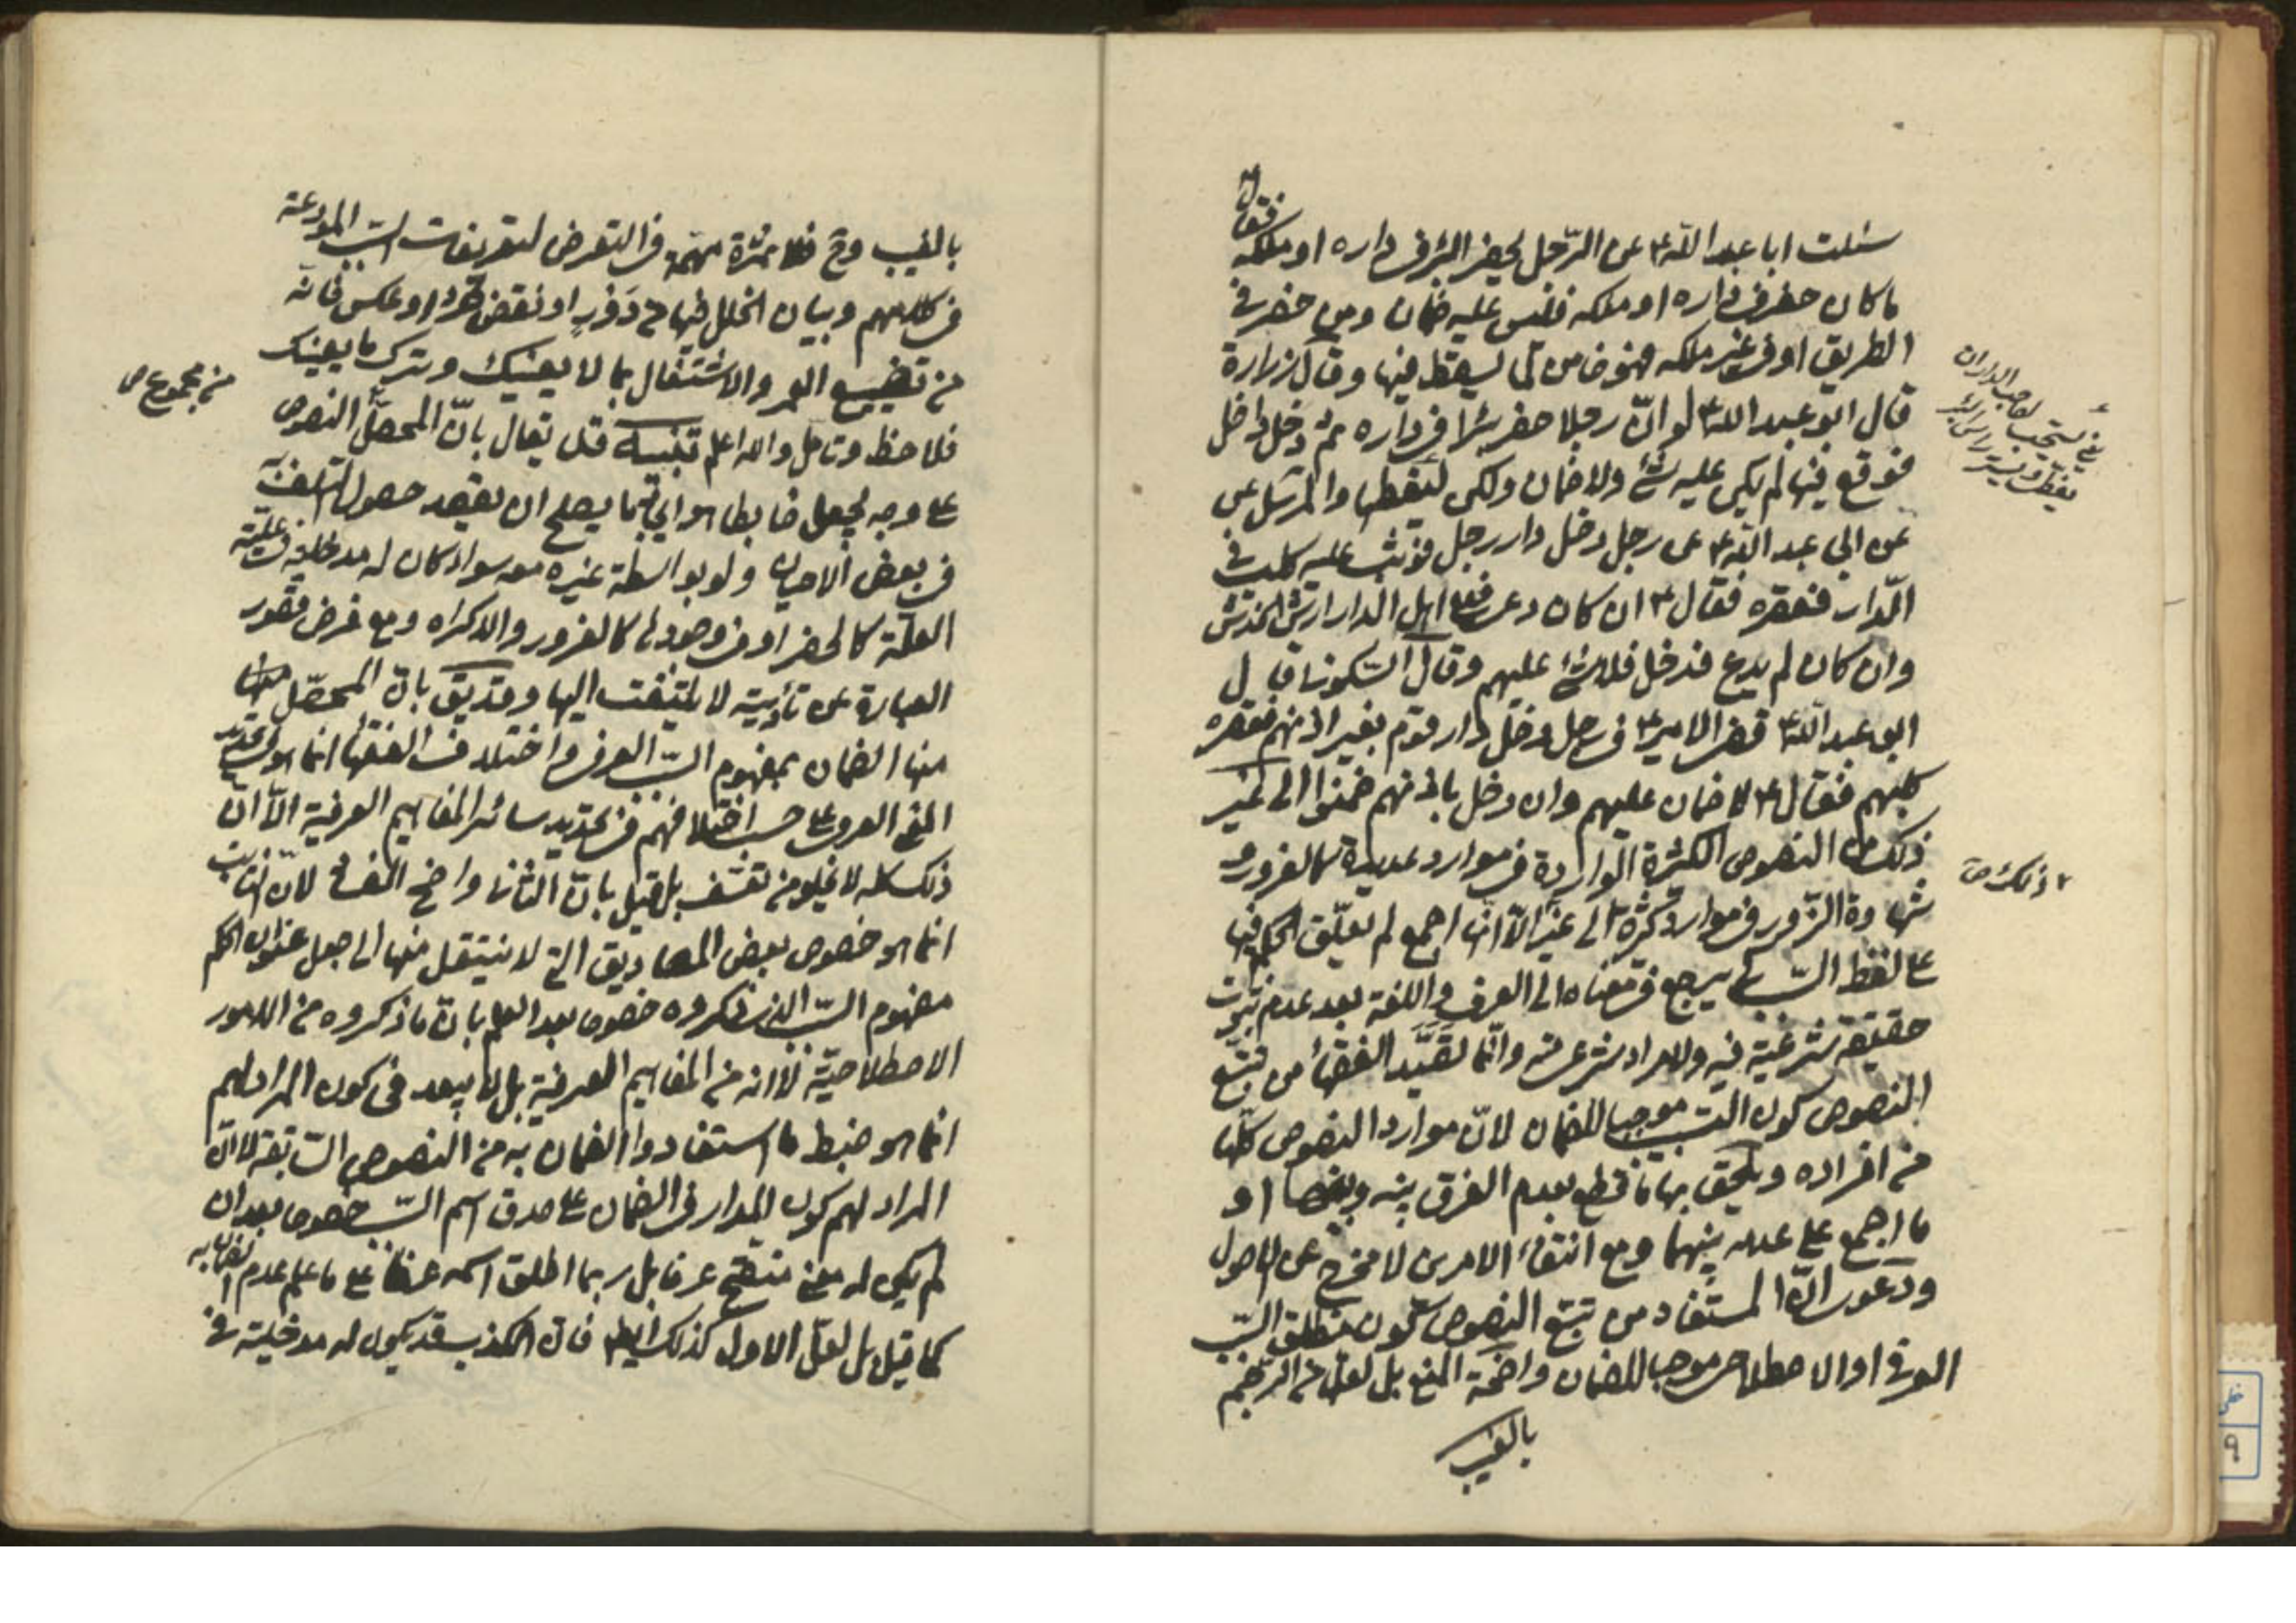 سئلت ابا عبد الله ع عن الرّجل يحفر البئر في داره او ملكه فقال
ما كان حفر في داره او ملكه فليس عليه ضمان وما حفر في
الطريق او في غير ملكه فهو ضامن لما يسقط فيها وقال زرارة
قال ابو عبد الله ع لو انّ رجلا حفر بئرا في داره ثمّ دخل داخل
فوقع فيها لم يكن عليه شئ ولا ضمان ولكن ليغطها والمرسل عن
عن ابي عبد الله ع عن رجل دخل دار رجل فوثب عليه كلب في
الدّار فعقره فقال ع ان كان دعى فعلى اهل الدار ارش الخدش
وان كان لم يدع فدخل فلا شئ عليهم وقال السّكوني قال
ابو عبد الله ع قضى الامير ع في رجل دخل دار قوم بغير اذنهم فعقره
كلبهم فقال ع لا ضمان عليهم وان دخل باذنهم ضمنوا الى غير
ذلك من النصوص الكثيرة الواردة في موارد عديدة كالغرور و
شهادة الزّور في موارد كثيرة الى غير الّا انّها اجمع لم يعلّق الحكم فيها
على لفظ السّبب كي يرجع في معناه الى العرف واللغة بعد عدم ثبوت
حقيقة شرعيّة فيه ولا مراد شرعي منه وانّما استفيد الفقهاء من تتبّع
النصوص كون السّبب موجبا للضمان لانّ موارد النصوص كلّها
من افراده ويلحق بها ما قطع بعدم الفرق بينه وبينها او
ما اجمع على عدمه بينهما ومع انتفاء الامرين لا مخرج عن الاصول
ودعوى انّ المستفاد من تتبّع النصوص كون مطلق السّبب
العرفي او الاصطلاحي موجبا للضمان واضحة المنع بل لعلّه من الرّجم
بالغيب
يعني يستحب لصاحب الدار ان
ذلك ص
بالغيب وح فلا ثمرة مهمّة في التعرض لتعريفات السّبب المودعة
في كلامهم وبيان الخلل فيها من دور او نقض طرد او عكس فانّه
من تضييع العمر والاشتغال بما لا يعنيك وترك ما يعنيك
فلاحظ وتامل والله اعلم تنبيه قد يقال بانّ المحصّل النصوص
على وجه يجعل ضابطا هو ايجاد ما يصلح ان يقصد حصول التلف
في بعض الاحيان ولو بواسطة غيره معه سواء كان له مدخلية في علّيّة
العلّة كالحفر او في وجودها كالغرور والاكراه ومع فرض قصور
العبارة عن تأديته لا يلتفت اليها وقد يق بانّ المحصّل
منها الضمان بمفهوم السّبب العرفي واختلاف الفقهاء انما هو في تحديد
المعنى العرفي على حسب اختلافهم في تحديد سائر المفاهيم العرفية الّا انّ
ذلك كله لا يخلو من تعسّف بل قيل بانّ الثاني واضح الفساد لانّ الثابت
انما هو خصوص بعض المصاديق التي لا ينتقل منها الى جعل عنوان الحكم
مفهوم السّبب الذي ذكروه خصوصا بعد العلم بانّ ما ذكروه من الامور
الاصطلاحيّة لا انه من المفاهيم العرفية بل لا يبعد في كون المراد لهم
انما هو ضبط ما استفادوا الضمان به من النصوص السّابقة لا انّ
المراد لهم كون المدار في الضمان على صدق اسم السّبب خصوصا بعد ان
لم يكن له معنى منقّح عرفا بل ربما اطلق اسمه عرفا على ما علم عدم الضمان به
كما قيل بل لعلّ الاول كذلك ايضا فانّ الكذب قد يكون له مدخلية في
من مجموع ص